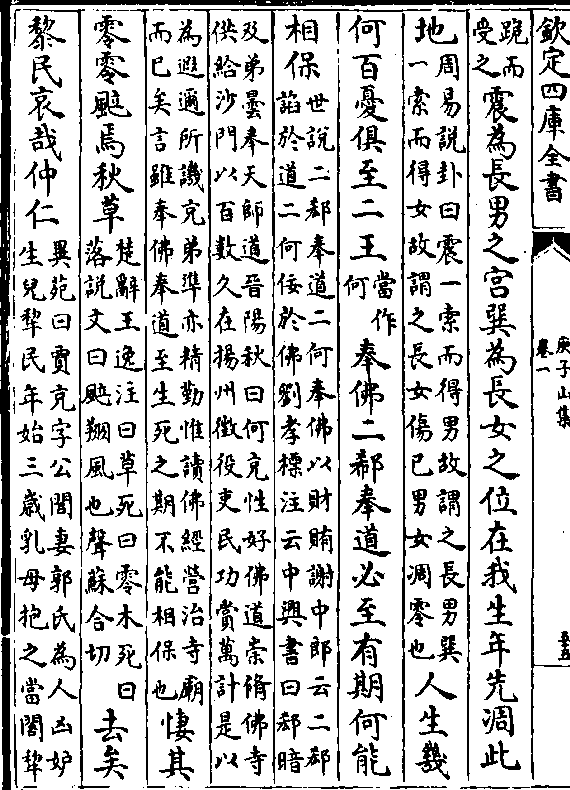 欽定四庫全書
庾子山集
卷一
跪而
受之
震為長男之宮巽為長女之位在我生年先凋此
地
周易說卦曰震一索而得男故謂之長男巽
一索而得女故謂之長女傷已男女凋零也
人生幾
何百憂俱至二王
當作
何
奉佛二郗奉道必至有期何能
相保
世說二郗奉道二何奉佛以財賄謝中郎云二郗
諂於道二何佞於佛劉孝標注云中興書曰郗愔
及弟曇奉天師道晉陽秋曰何充性好佛道崇脩佛寺
供給沙門以百數久在揚州徵役吏民功賞萬計是以
為遐邇所譏充弟準亦精勤惟讀佛經營治寺廟
而已矣言雖奉佛奉道至生死之期不能相保也
悽其
零零颯焉秋草
楚辭王逸注曰草死曰零木死曰
落說文曰颯翔風也聲蘇合切
去矣
黎民哀哉仲仁
異苑曰賈充字公閭妻郭氏為人凶妒
生兒犂民年始三歲乳母抱之當閤犂